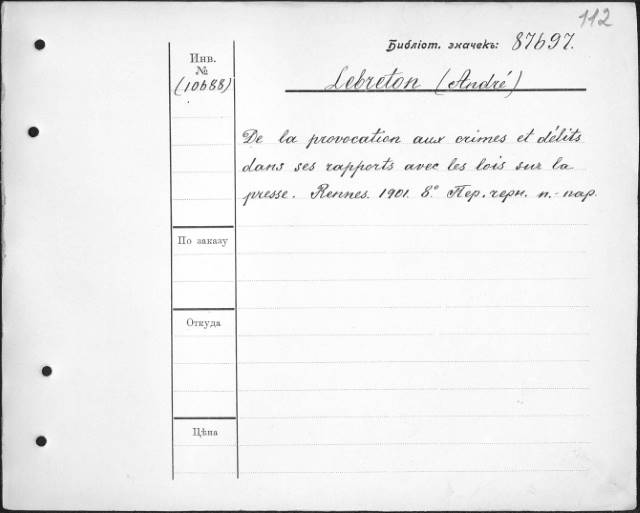 112
Библіот. значекъ: 87697.
Инв.
№
(10688)
Lebreton (André)
De la provocation aux crimes et délits
dans ses rapports avec les lois sur la
presse. Rennes. 1901. 8° Пер. черн. п.-пар.
По заказу
Откуда
Цѣна